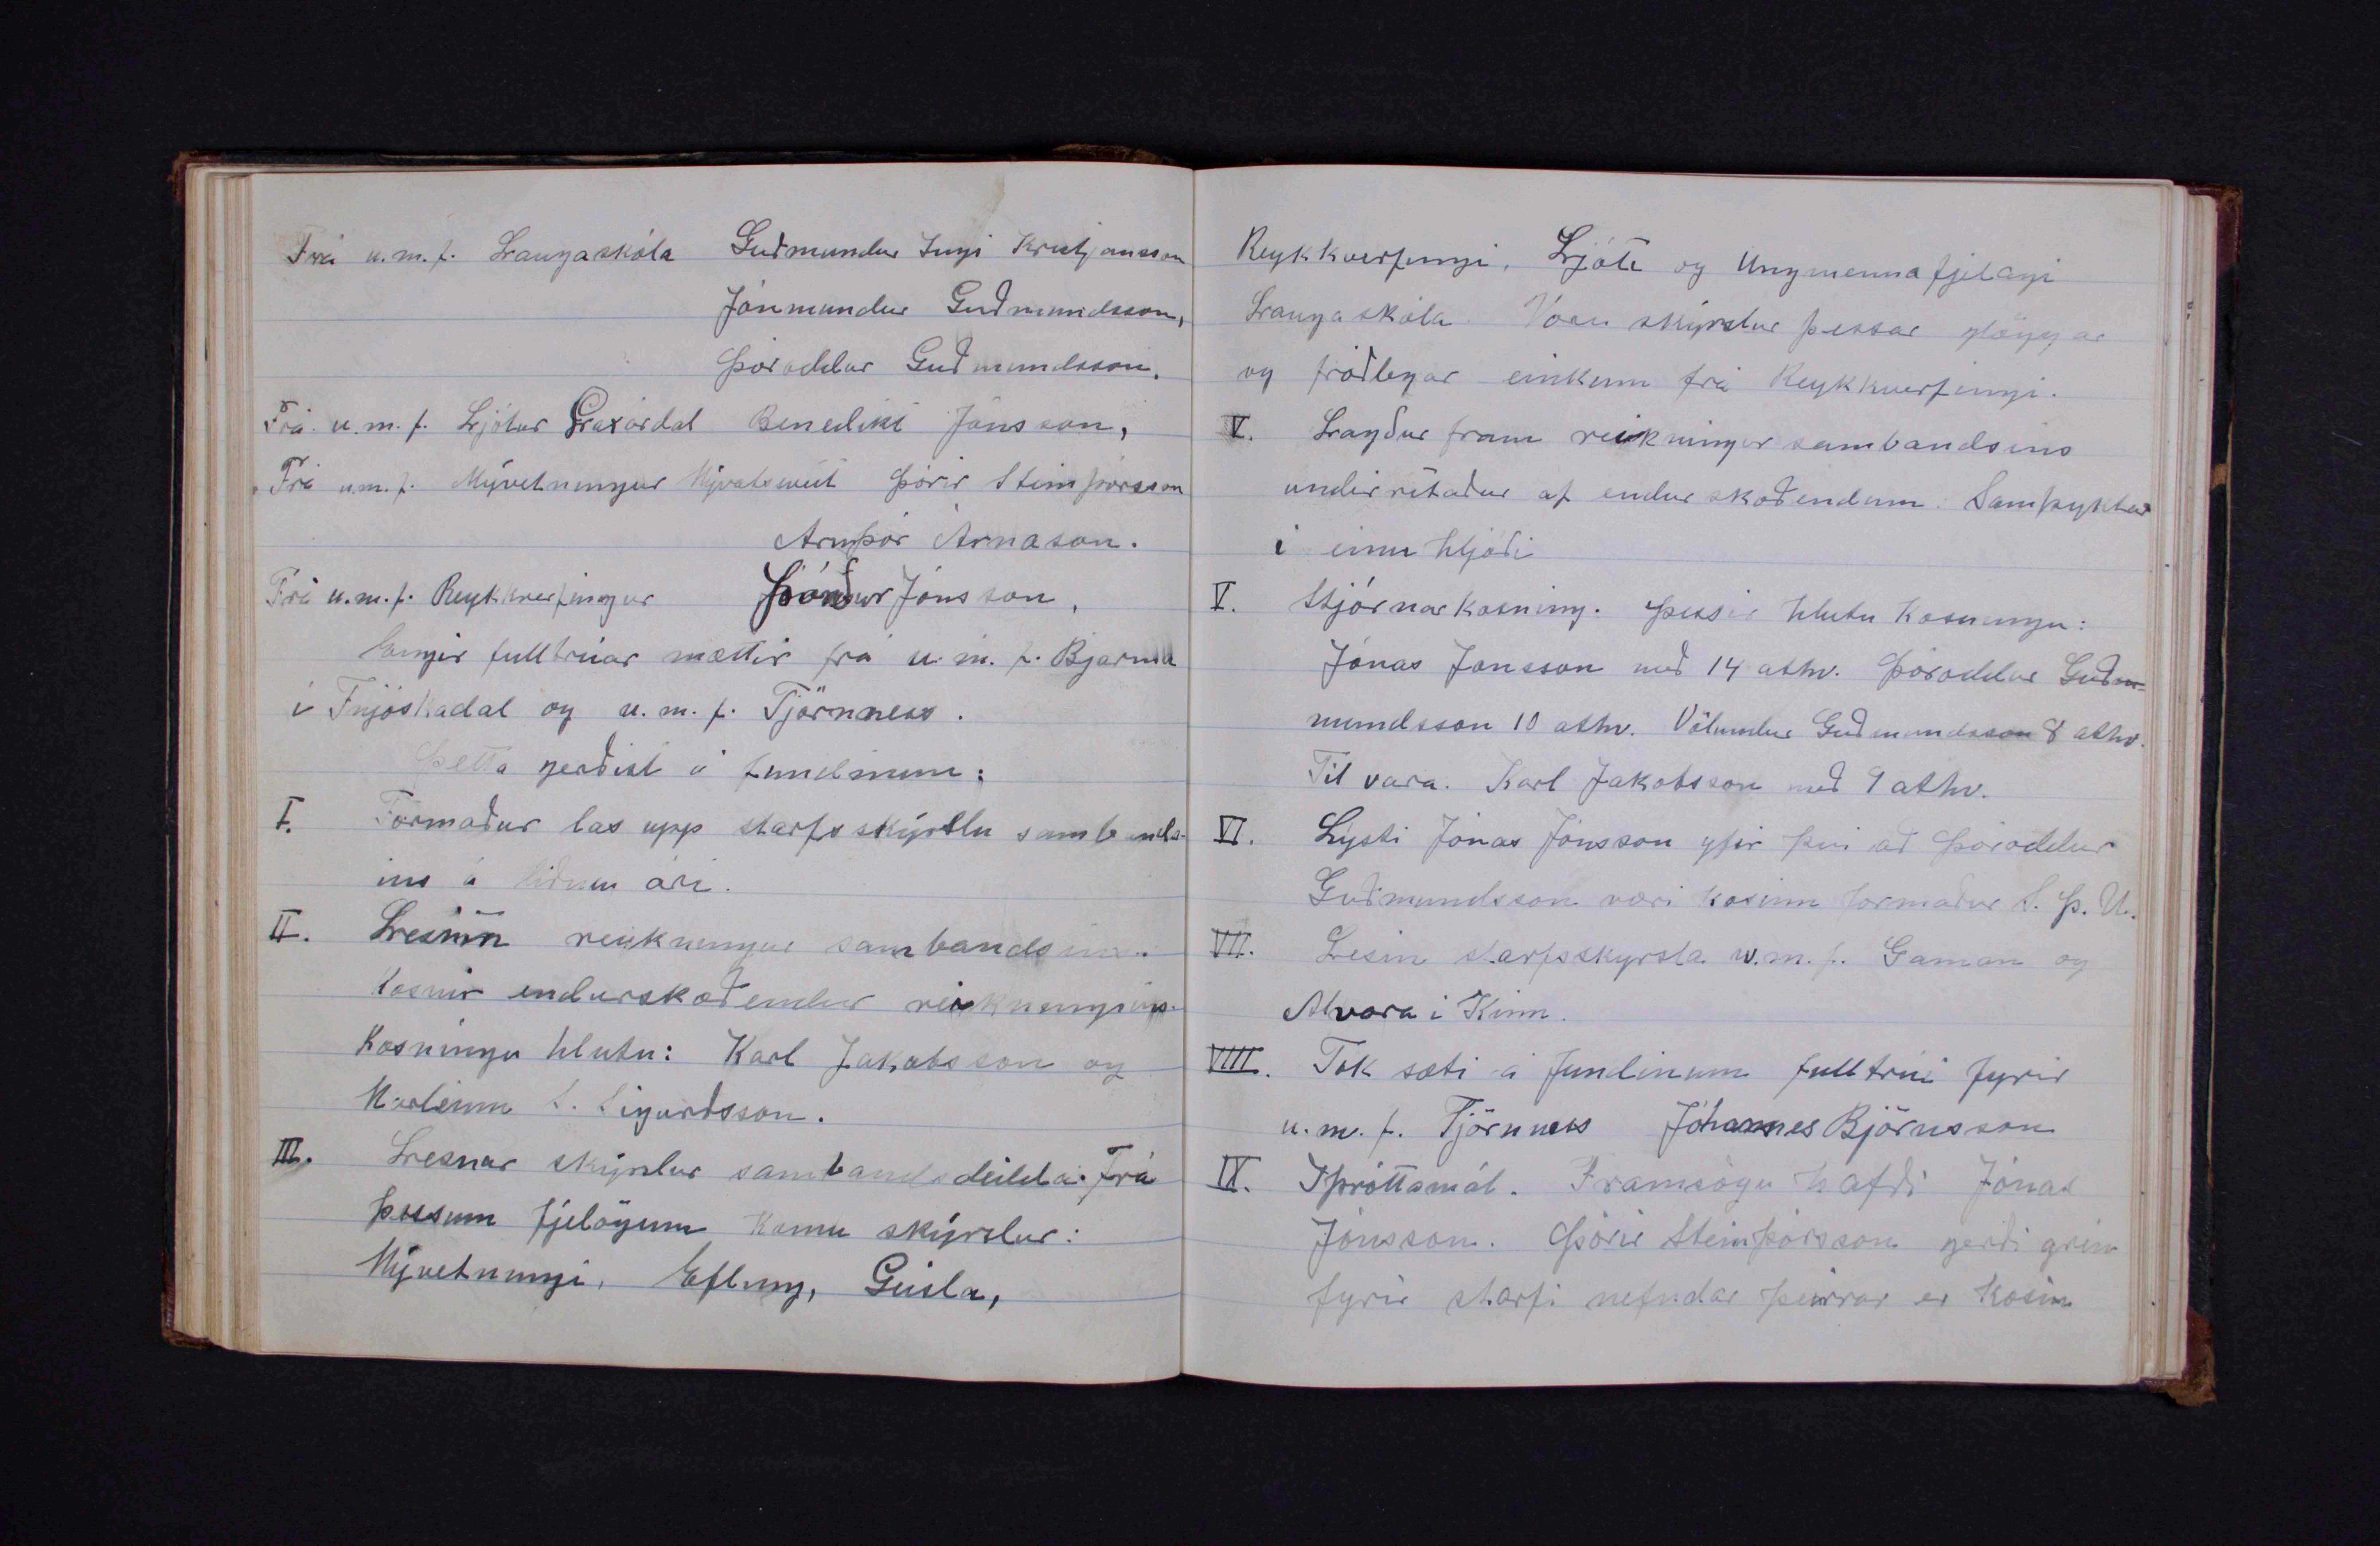 Frá u.m.f. Laugaskóla Guðmundur Ingi Kristjánsson
Jónmundur Guðmundsson,
Þóroddur Guðmundsson.
Frá u.m.f. Ljótur Laxárdal Benedikt Jónsson,
Frá u.m.f. Mývetningur Mývatssveit Þórir Steinþórsson
Arnþór Árnason.
Frá u.m.f. Reykhverfingur Þórður Jónsson,
Engir fulltrúar mættir frá u.m.f. Bjarma
í Fnjóskadal og u.m.f. Tjörness.
Þetta gerðist á fundinum:
I. Formaður las upp starfsskýrslu sambands-
ins á liðnu ári.
II. Lesinn reikningur sambandsins.
Kosnir endurskoðendur reikningsins.
Kosningu hlutu: Karl Jakobsson og
Marteinn S. Sigurðsson.
III. Lesnar skýrslur sambandsdeilda. Frá
þessum fjelögum komu skýrslur:
Mývetningi, Efling, Geisla,
Reykhverfingi, Ljóti og Ungmennafjelagi
Laugaskóla. Vóru skýrslur þessar glöggar
og fróðlegar einkum frá Reykhverfingi.
V. Lagður fram reikningur sambandsins
undirritaður af endurskoðendum. Samþyktur
í einu hljóði
V. Stjórnarkosning. Þessir hlutu kosningu:
Jónas Jónsson með 14 atkv. Þóroddur Guðm-
mundsson 10 atkv. Völundur Guðmundsson 8 atkv.
Til vara. Karl Jakobsson með 9 atkv.
VI. Lýsti Jónas Jónsson yfir því að Þóroddur
Guðmundsson væri kosinn formaður S. Þ. U.
VII. Lesin starfsskýrsla u.m.f. Gaman og
Alvara í Kinn.
VIII. Tók sæti á fundinum fulltrúi fyrir
u.m.f. Tjörness Jóhannes Björnsson
IX. Íþróttamál. Framsögu hafði Jónas
Jónsson. Þórir Steinþórsson gerði grein
fyrir starfi nefndar þeirrar er kosin